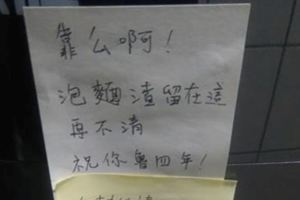 靠么啊!
泡麵渣留在這
再不清
祝你魯四年!